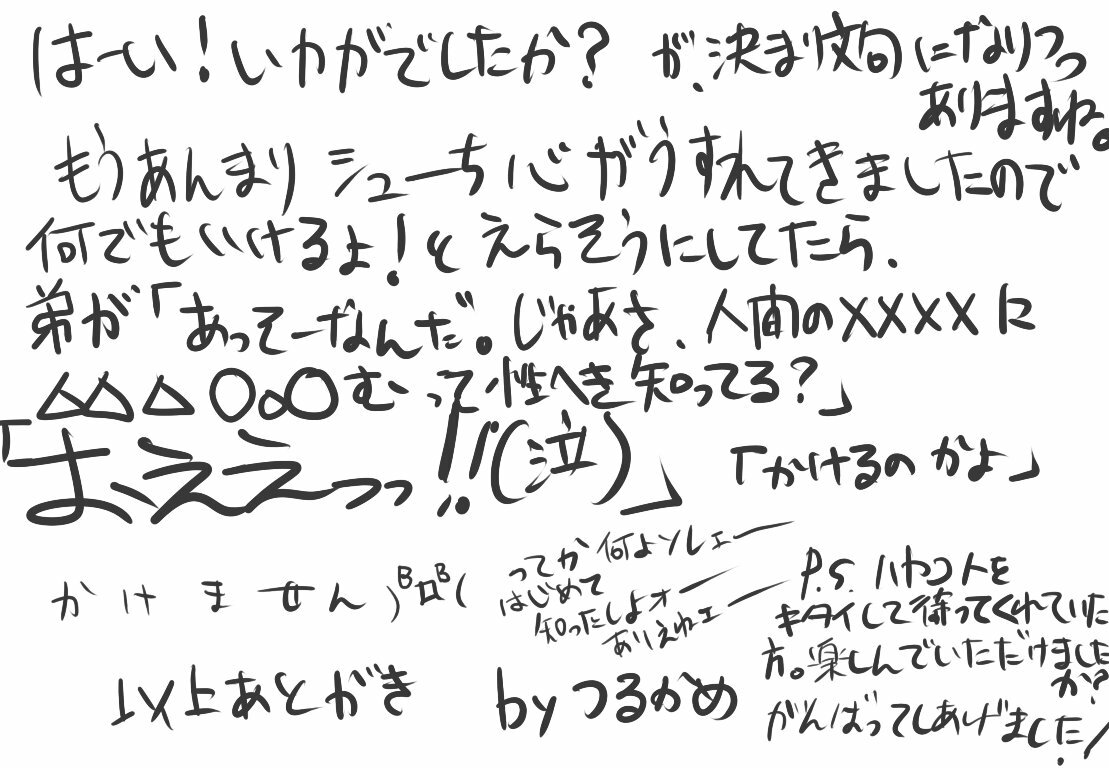 はーい！いかがでしたか？ が、決まり文句になりつつ
ありますね。
もうあんまりシューち心がうすれてきましたので
何でもいけるよ！とえらそうにしてたら、
弟が「あってーなんだ。じゃあさ、人間のXXXXに
△△△○○○むって性へき知ってる？」
「おええっっ!!(泣)」
「かけるのかよ」
かけません
ってか何よソレェー
はじめて
知ったしよォー
ありえねェー
P.S. ハヤコトを
キタイして待ってくれていた
方。楽しんでいただけました
か？
がんばってしあげました！
以上あとがき byつるかめ